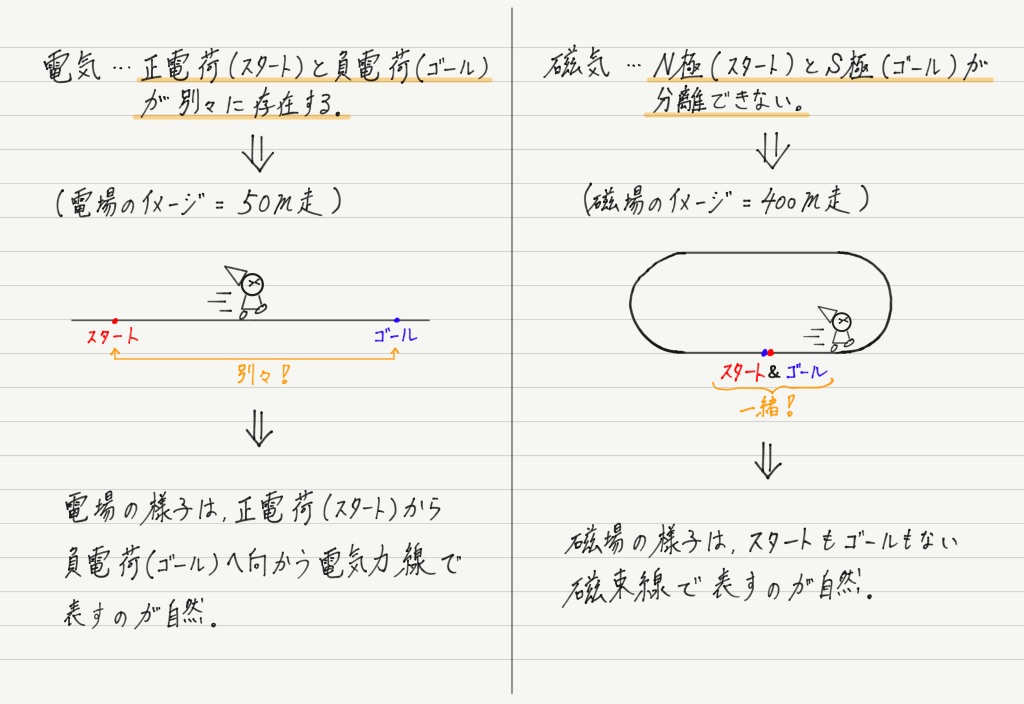 電気…正電荷(スタート)と負電荷(ゴール)
が別々に存在する。
(電場のイメージ = 50m走)
スタート
ゴール
別々!
電場の様子は,正電荷(スタート)から
負電荷(ゴール)へ向かう電気力線で
表すのが自然。
磁気…N極(スタート)とS極(ゴール)が
分離できない。
(磁場のイメージ = 400m走)
スタート&ゴール
一緒!
磁場の様子は,スタートもゴールもない
磁束線で表すのが自然。